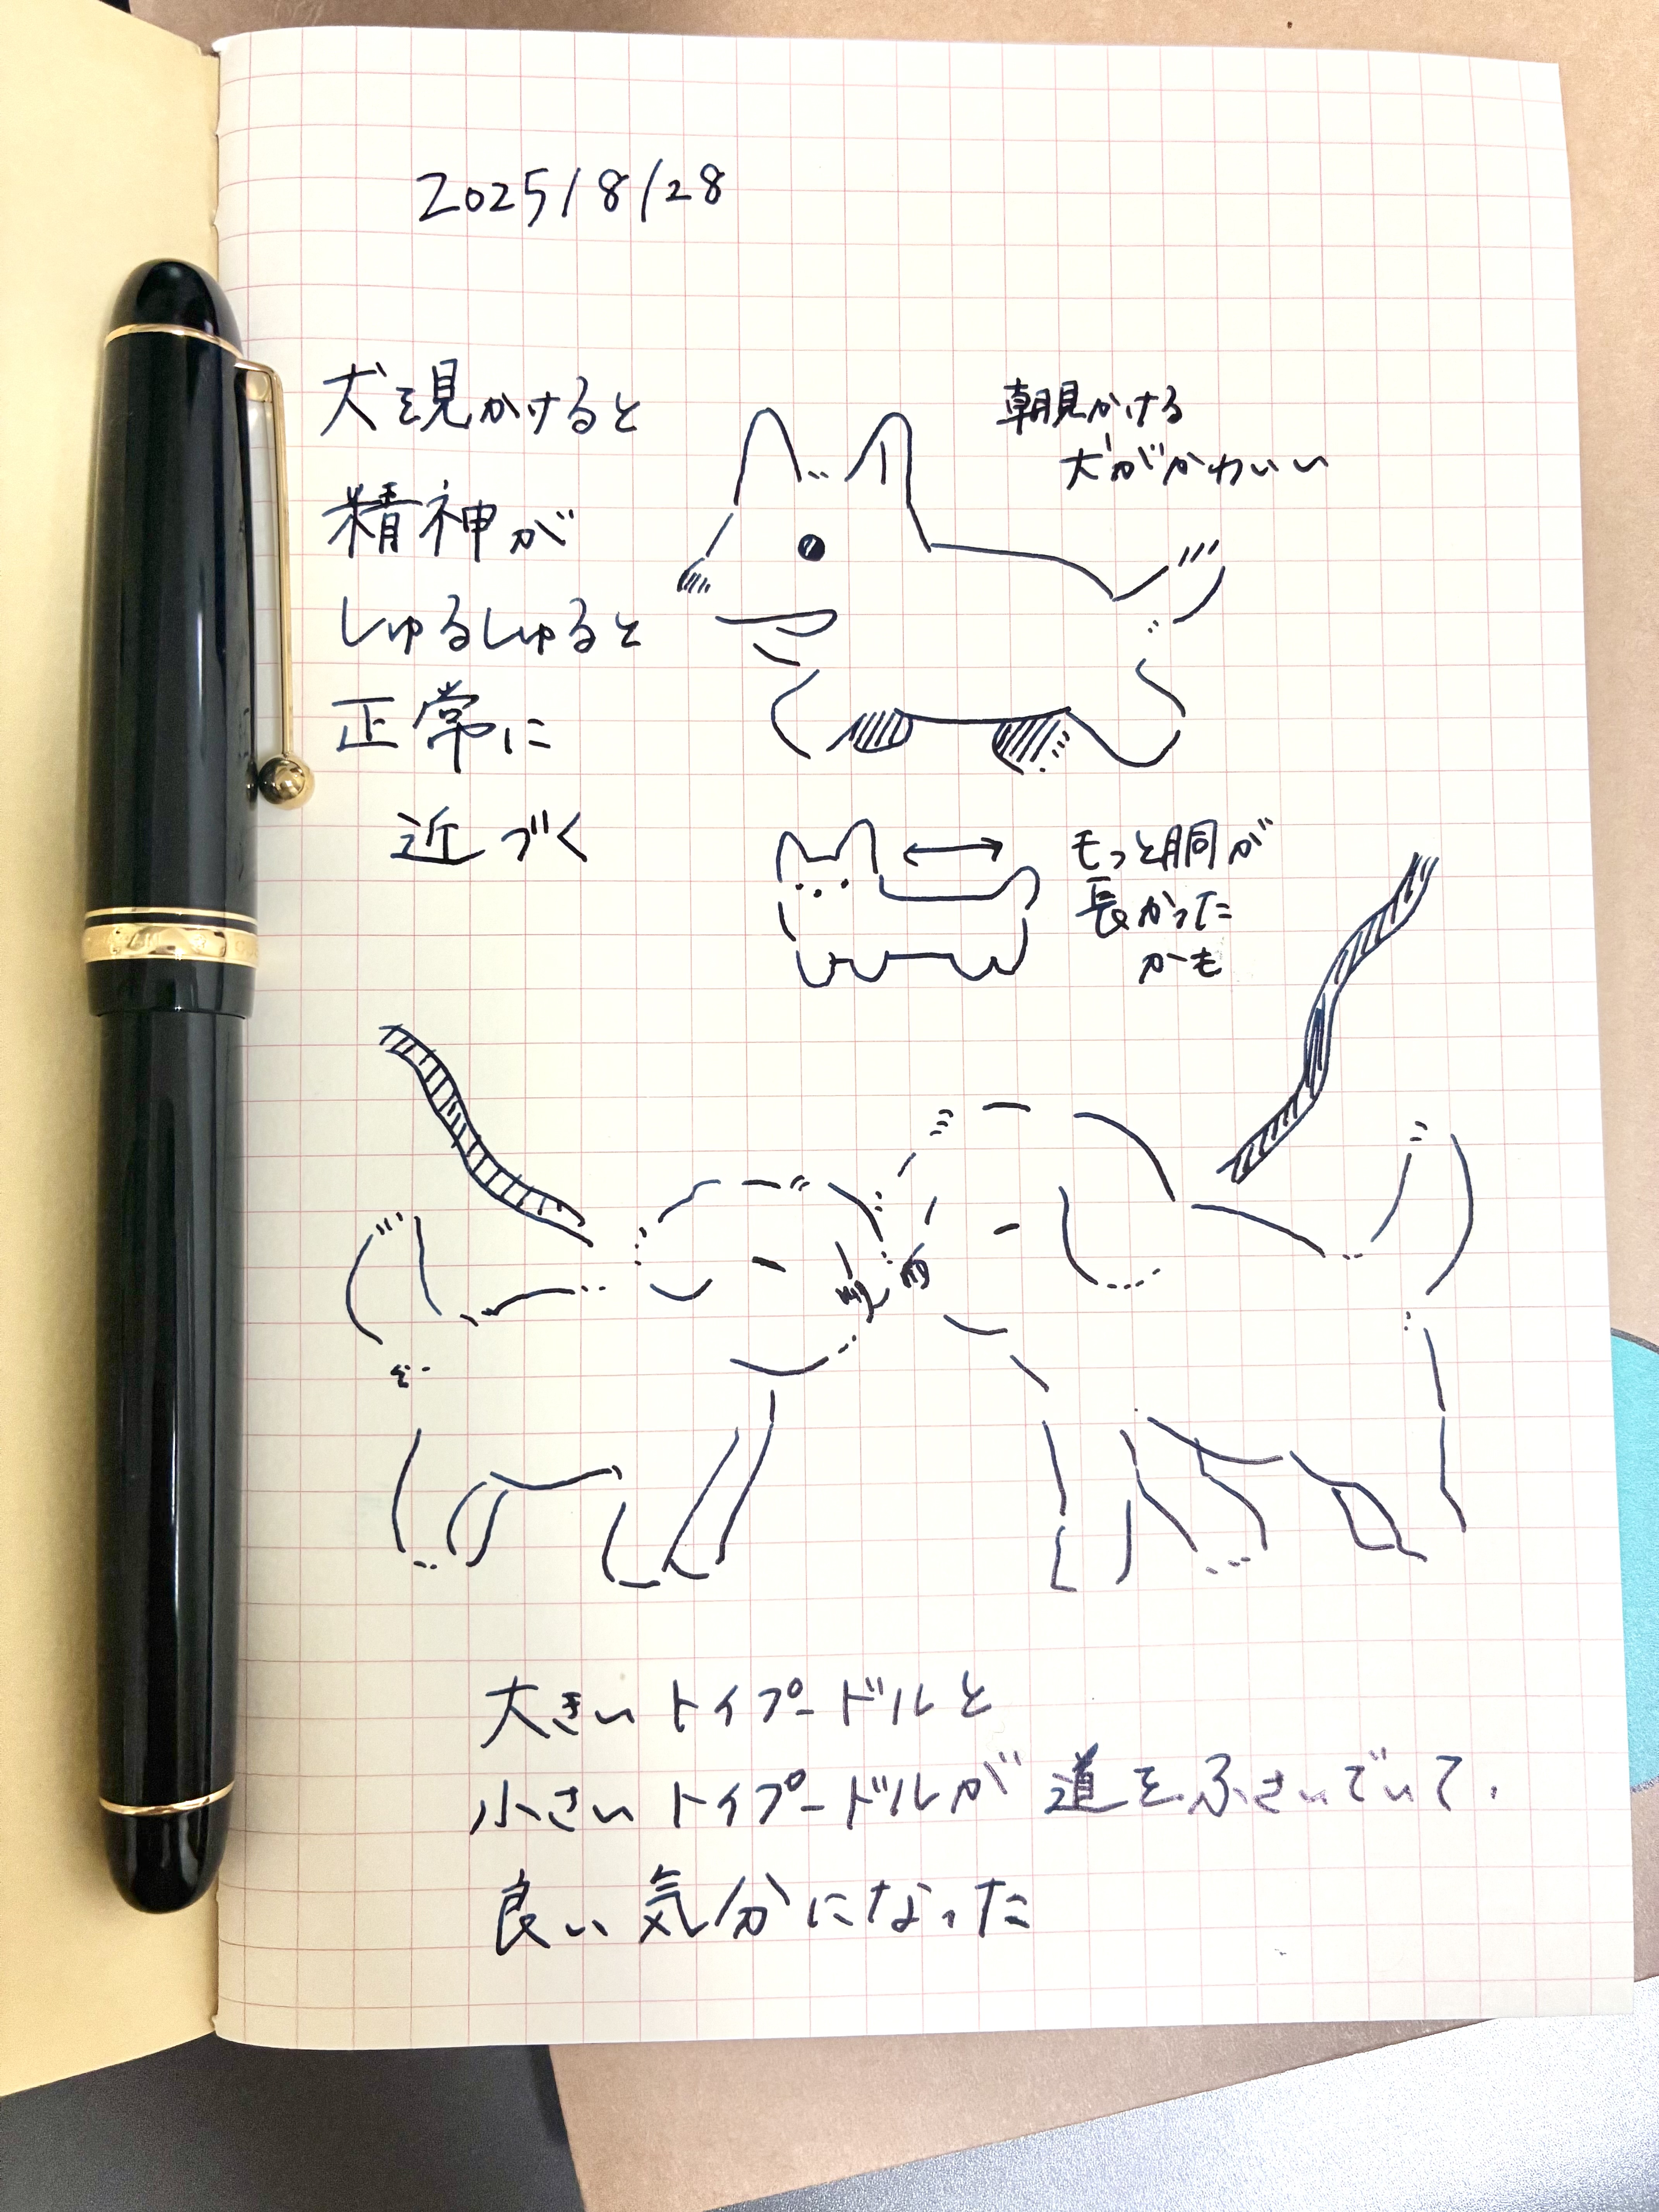 2025/8/28
犬を見かけると
精神が
しゅるしゅると
正常に
近づく
朝見かける
犬がかわいい
もっと胴が
長かった
かも
大きいトイプードルと
小さいトイプードルが道をふさいでいて、
良い気分になった